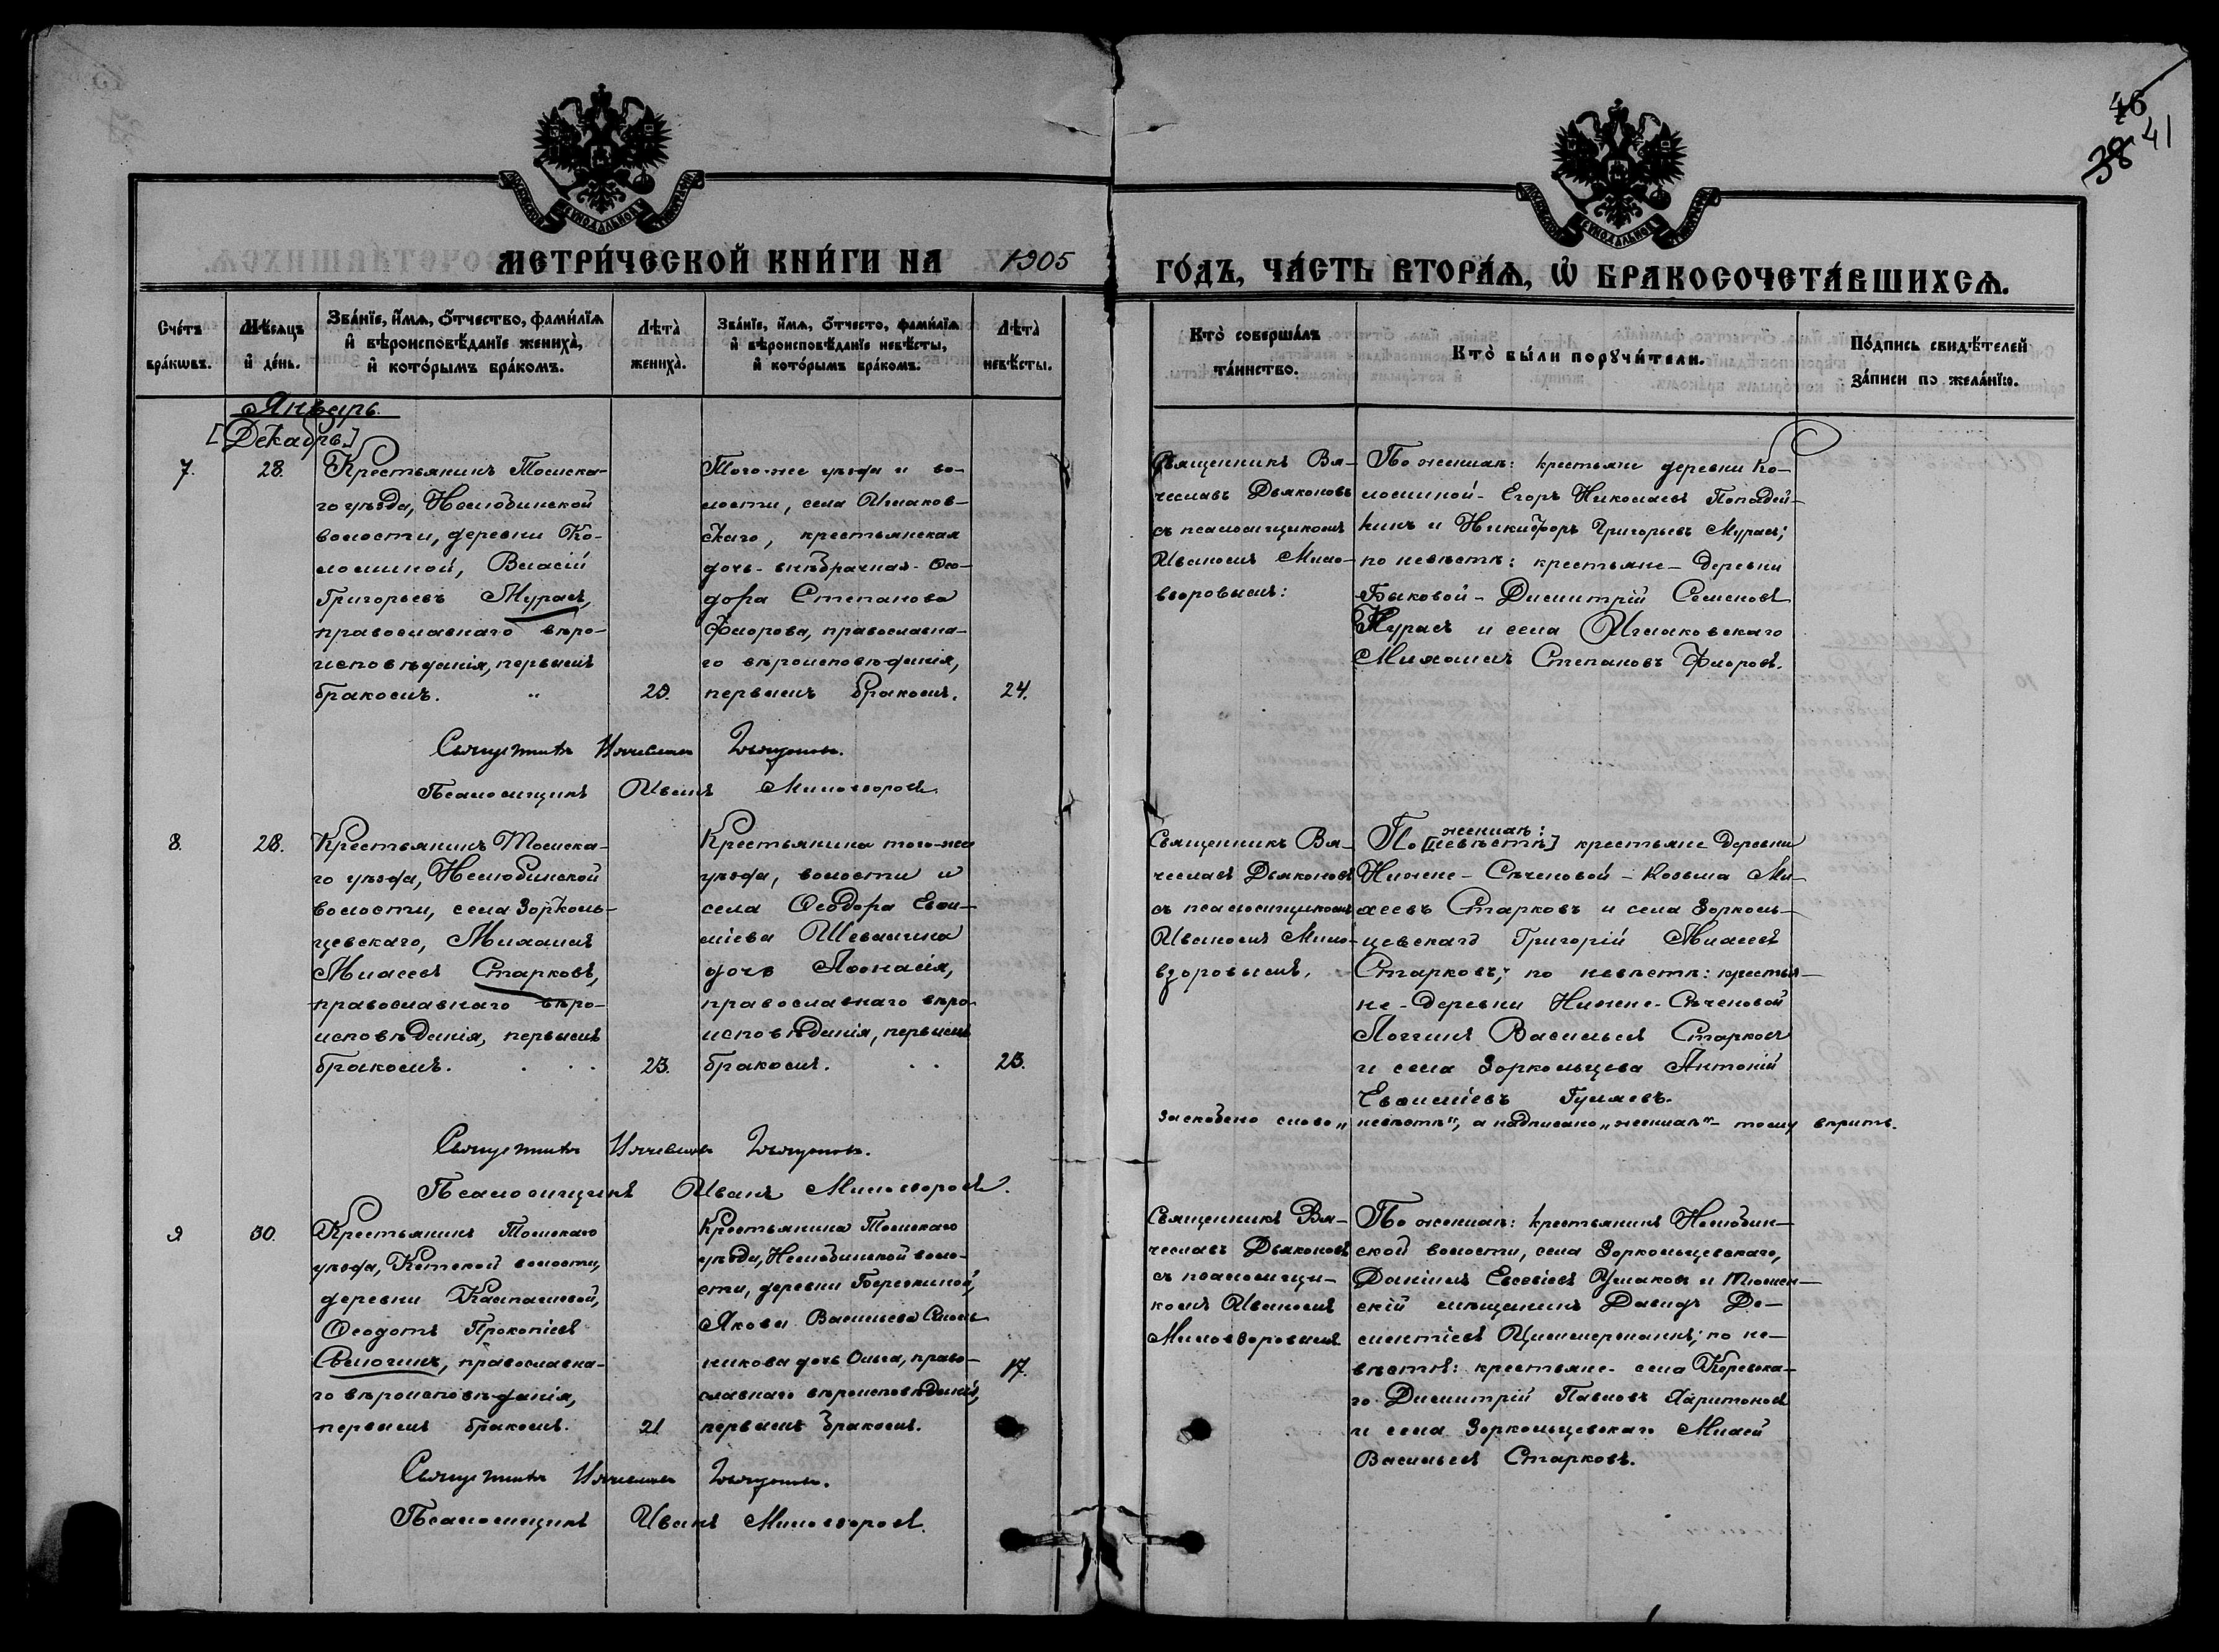 46
38 41
МЕТРИ́ЧЕСКОЙ КНИ́ГИ НА 1905
ГО́ДЪ, ЧА́СТЬ ВТОРА́Ѧ, Ѡ҆ БРАКОСОЧЕТА́ВШИХСѦ.
Сче́тъ бра́кѡвъ.
Мѣ́сѧцъ и҆ де́нь.
Зва́нїе, и҆́мѧ, ѻ҆́тчество, фами́лїѧ и҆ вѣроисповѣ́данїе жениха̀, и҆ кото́рымъ бра́комъ.
Лѣта̀ жениха̀.
Зва́нїе, и҆́мѧ, ѻ҆́тчество, фами́лїѧ и҆ вѣроисповѣ́данїе невѣ́сты, и҆ кото́рымъ бра́комъ.
Лѣта̀ невѣ́сты.
Кто̀ соверша́лъ та́инство.
Кто̀ бы́ли порꙋчи́тели.
По́дпись свидѣ́телей за́писи по жела́нїю.
Январь.
[Декабрь.]
7.
28.
Крестьянинъ Томска-
го уѣзда, Нелюбинской
волости, деревни Ко-
ломиной, Власій
Григорьевъ Мурас,
православнаго вѣро-
исповѣданія, первымъ
бракомъ. „
29.
Того-же уѣзда и во-
лости, села Иглаков-
скаго, крестьянская
дочь- внѣбрачная- Ѳео-
дора Степанова
Фморова, православна-
го вѣроисповѣданія,
первымъ бракомъ.
24.
Священникъ Вя-
чеславъ Дьяконовъ
съ псаломщикомъ
Иваномъ Мило-
взоровымъ:
По женихѣ: крестьяне деревни Ко-
ломиной- Егоръ Николаевъ Попадей-
кинъ и Никифоръ Григорьевъ Мурас;
по невѣстѣ: крестьяне- деревни
Быковой- Димитрій Семеновъ
Мурасъ и села Иглаковскаго
Михаилъ Степановъ Фморовъ.
Священникъ Вячеславъ Дьяконовъ.
Псаломщикъ Иванъ Миловзоровъ.
8.
28.
Крестьянинъ Томска-
го уѣзда, Нелюбинской
волости, села Зоркаль-
цевскаго, Михаилъ
Миасевъ Старковъ,
православнаго вѣро-
исповѣданія, первымъ
бракомъ. . . .
23.
Крестьянина того-же
уѣзда, волости и
села Ѳеодора Евѳи-
міева Шевалина
дочь Аѳонасія,
православнаго вѣро-
исповѣданія, первымъ
бракомъ. . .
23.
Священникъ Вя-
чеславъ Дьяконовъ
съ псаломщикомъ
Иваномъ Мило-
взоровымъ.
женихѣ:
По [невѣстѣ] крестьяне деревни
Нижне- Сѣченовой- Козьма Ми-
хеевъ Старковъ и села Зоркаль-
цевскаго Григорій Миасевъ
Старковъ; по невѣстѣ: крестья-
не- деревни Нижне-Сѣченовой
Логгинъ Васильевъ Старковъ
и села Зоркальцева Антоній
Евѳиміевъ Гуляевъ.
Заскоблено слово „невѣстѣ", а надписано „женихѣ"- тому вѣрить.
Священникъ Вячеславъ Дьяконовъ.
Псаломщикъ Иванъ Миловзоровъ.
9
30.
Крестьянинъ Томскаго
уѣзда, Кетской волости,
деревни Калпашевой,
Ѳеодотъ Прокопіевъ
Свѣтогинъ, православна-
го вѣроисповѣданія,
первымъ бракомъ.
21
Крестьянина Томскаго
уѣзда, Нелюбинской воло-
сти, деревни Березкиной,
Якова Васильева Смоль-
никова дочь Ольга, право-
славнаго вѣроисповѣданія,
первымъ бракомъ.
17.
Священникъ Вя-
чеславъ Дьяконовъ
съ псаломщи-
комъ Иваномъ
Миловзоровымъ
По женихѣ: крестьянинъ Нелюбин-
ской волости, села Зоркальцевскаго,
Даніилъ Евсевіевъ Ушаковъ и Тюмен-
скій мѣщанинъ Давидъ Де-
ментіевъ Циммерманъ; по не-
вѣстѣ: крестьяне- села Кіревска-
го Димитрій Павловъ Харитоновъ
и села Зоркальцевскаго Миасй
Васильевъ Старковъ.
Священникъ Вячеславъ Дьяконовъ.
Псаломщикъ Иванъ Миловзоровъ.